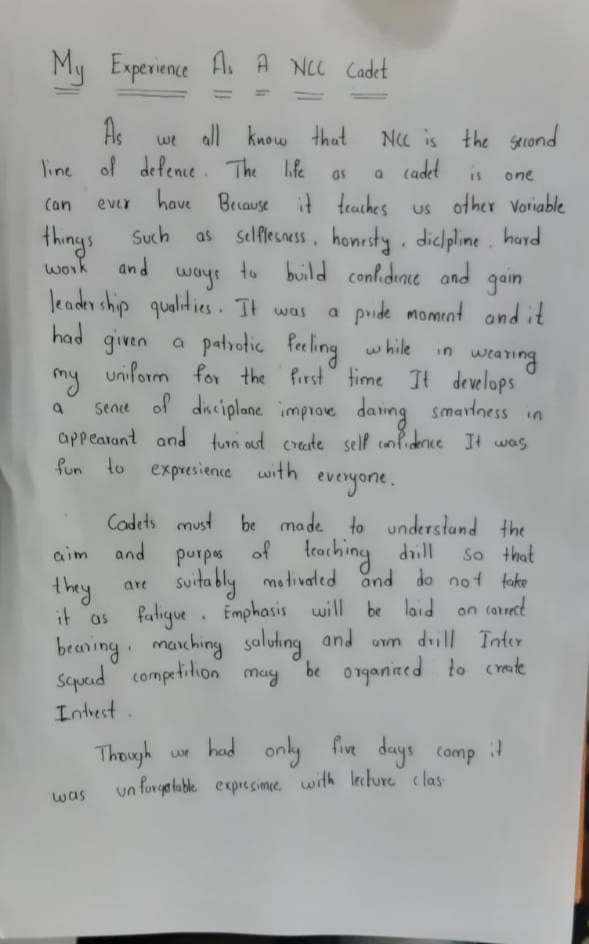 My Experience As A NCC Cadet
As we all know that NCC is the second
line of defence. The life as a cadet is one
can ever have Because it teaches us other Variable
things such as selflesness, honesty, diclpline, hard
work and ways to build confidence and gain
leadership qualities. It was a pride moment and it
had given a patrotic feeling while in wearing
my uniform for the first time It develops
a sence of disciplane improve daring smartness in
appearant and turn out create self confidence It was
fun to expresience with everyone.
Cadets must be made to understand the
aim and purpos of teaching drill so that
they are suitably motivated and do not take
it as fatigue. Emphasis will be laid on correct
bearing, marching saluting and arm drill Inter
squad competition may be organized to create
Intrest.
Though we had only five days camp it
was unforgatable expresince with lecture clas